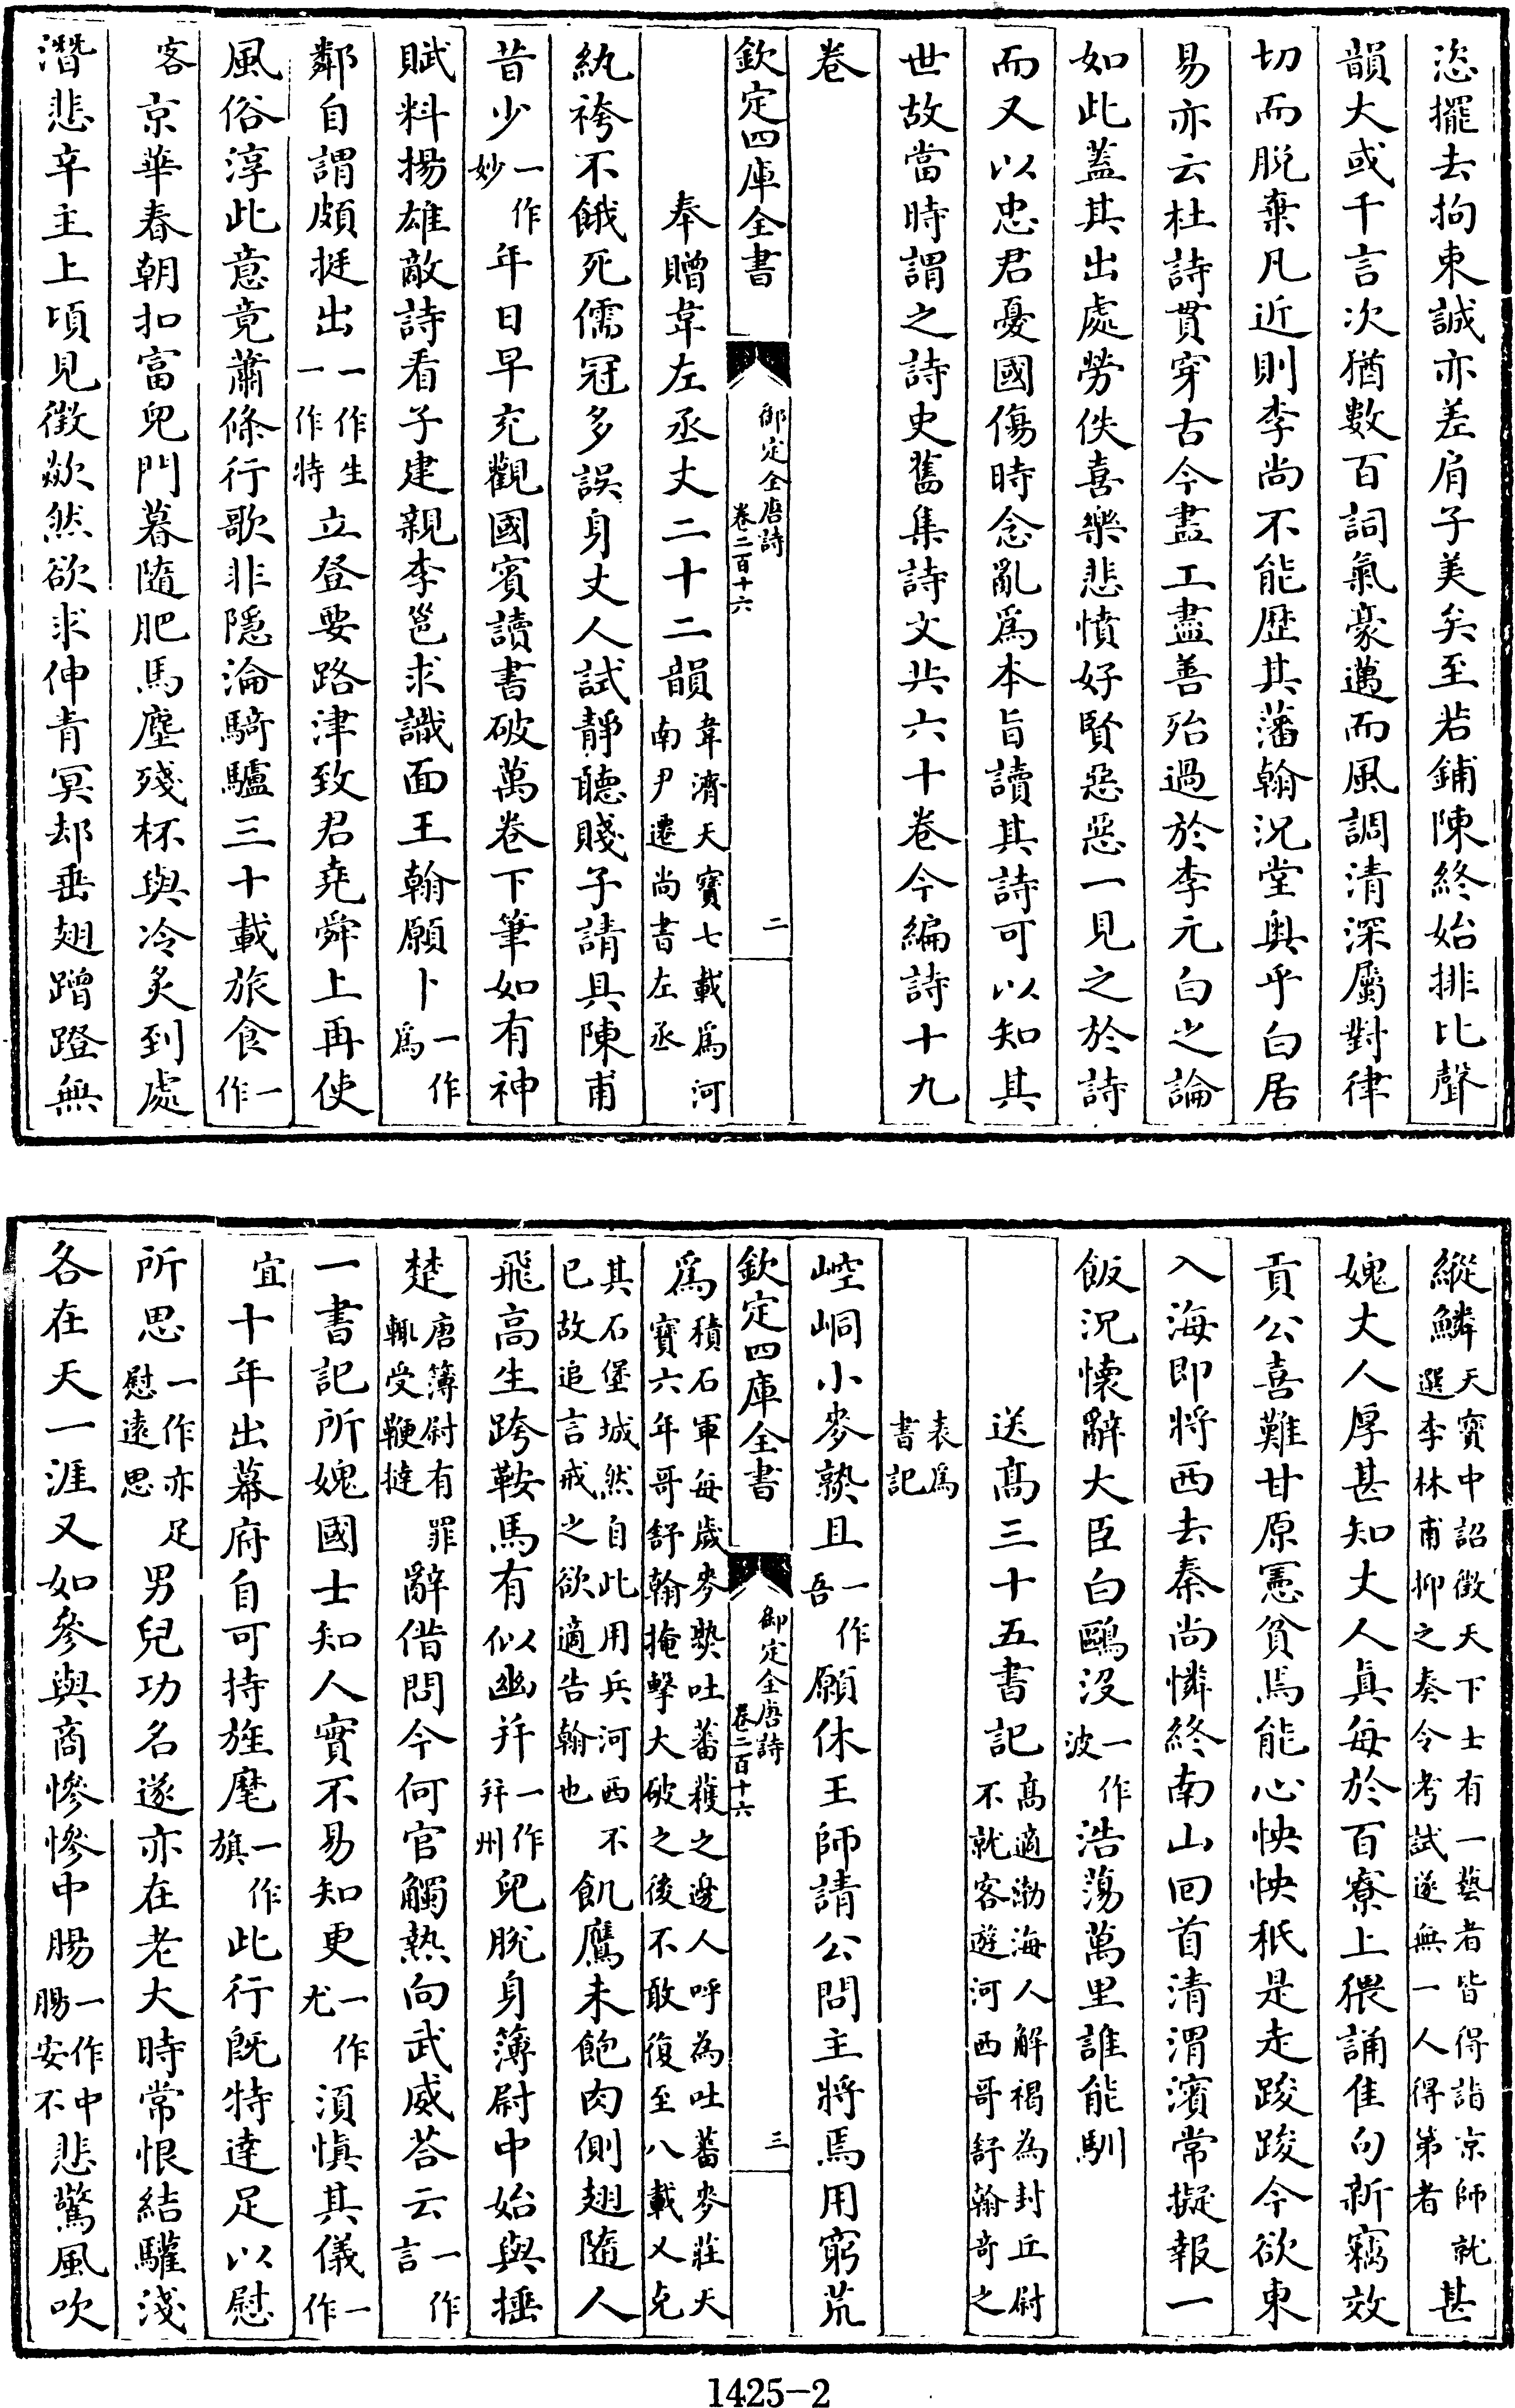 恣擺去拘束誠亦差肩子美矣至若鋪陳終始排比聲
韻大或千言次猶數百詞氣豪邁而風調清深屬對律
切而脫棄凡近則李尚不能歴其藩翰況堂奥乎白居
易亦云杜詩貫穿古今盡工盡善殆過於李元白之論
如此蓋其出處勞佚喜樂悲憤好賢惡惡一見之於詩
而又以忠君憂國傷時念亂爲本旨讀其詩可以知其
世故當時謂之詩史舊集詩文共六十卷今編詩十九
卷
欽定四庫全書 御定全唐詩 卷二百十六 二
奉贈韋左丞丈二十二韻韋濟天寶七載爲河南尹遷尚書左丞
紈袴不餓死儒冠多誤身丈人試靜聽賤子請具陳甫
昔少一作妙年日早充觀國賓讀書破萬卷下筆如有神
賦料揚雄敵詩看子建親李邕求識面王翰願卜一作爲
鄰自謂頗挺出一作生一作特立登要路津致君堯舜上再使
風俗淳此意竟蕭條行歌非隱淪騎驢三十載旅食一作
客京華春朝扣富兒門暮隨肥馬塵殘杯與冷炙到處
潛悲辛主上頃見徵歘然欲求伸青冥却垂翅蹭蹬無
縱鱗天寶中詔徵天下士有一藝者皆得詣京師就選李林甫抑之奏令考試遂無一人得第者甚
媿丈人厚甚知丈人眞每於百寮上猥誦佳句新竊效
貢公喜難甘原憲貧焉能心怏怏秖是走踆踆今欲東
入海即將西去秦尚憐終南山回首清渭濱常擬報一
飯況懐辭大臣白鷗没一作波浩蕩萬里誰能馴
送髙三十五書記髙適渤海人解褐為封丘尉不就客遊河西哥舒翰奇之
表爲書記
崆峒小麥熟且一作吾願休王師請公問主將焉用窮荒
欽定四庫全書 御定全唐詩 卷二百十六 三
爲積石軍每歲麥熟吐蕃獲之邊人呼為吐蕃麥莊天寶六年哥舒翰掩擊大破之後不敢復至八載又克
其石堡城然自此用兵河西不已故追言戒之欲適告翰也飢鷹未飽肉側翅隨人
飛高生跨鞍馬有似幽并一作并州兒脫身簿尉中始與捶
楚唐簿尉有罪輒受鞭撻辭借問今何官觸熱向武威荅云一作言
一書記所媿國士知人實不易知更一作尤須愼其儀一作
宜十年出幕府自可持旌麾一作旗此行旣特達足以慰
所思一作亦足慰遠思男兒功名遂亦在老大時常恨結驩淺
各在天一涯又如參與商慘慘中腸一作中腸安不悲驚風吹
1425-2